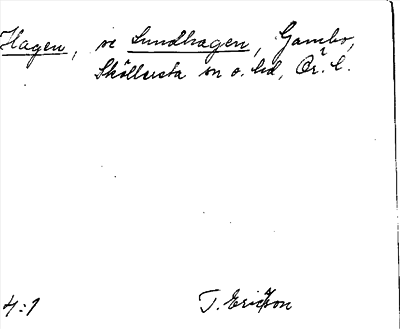 Hagen, se Sundhagen, Gambo,
Sköllersta sn o. hd, Ör. l.
4:1 T. Ericsson